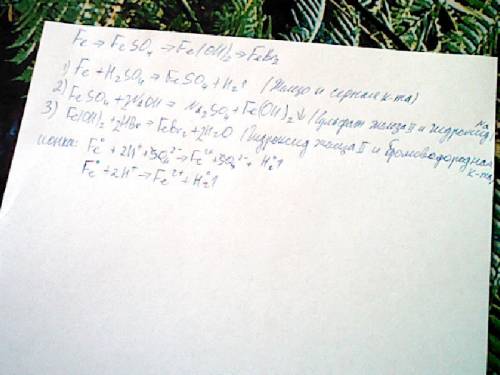 Fe → FeSO₄ → Fe(OH)₂ → FeBr₂
1) Fe + H₂SO₄ → FeSO₄ + H₂↑ (железо и серная к-та)
2) FeSO₄ + 2NaOH → Na₂SO₄ + Fe(OH)₂↓ (сульфат железа II и гидроксид Na
3) Fe(OH)₂ + 2HBr → FeBr₂ + 2H₂O (гидроксид железа II и бромоводородная к-та
Fe⁰ + 2H⁺ + SO₄²⁻ → Fe²⁺ + SO₄²⁻ + H₂⁰↑
Fe⁰ + 2H⁺ → Fe²⁺ + H₂⁰↑